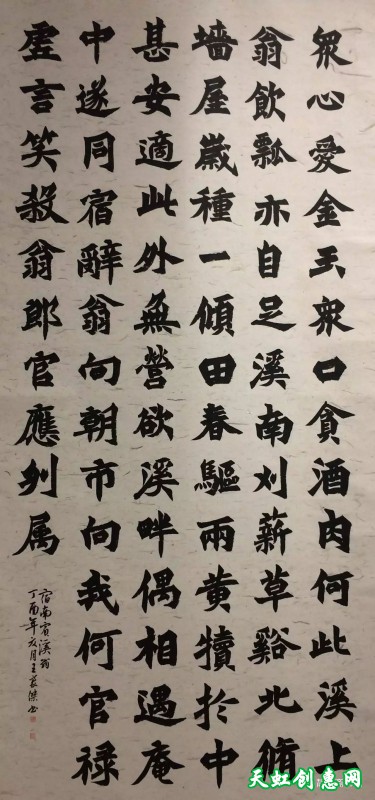 衆心愛金玉衆口貪酒肉何此溪上
翁飲瓢亦自足溪南刈薪草谿北脩
墻屋歲種一傾田春驅兩黄犢於中
甚安適此外無營欲溪畔偶相遇庵
中遂同宿辭翁向朝市向我何官禄
虚言笑殺翁郎官應列属
宿南溪
丁酉年月王書
天虹创惠网